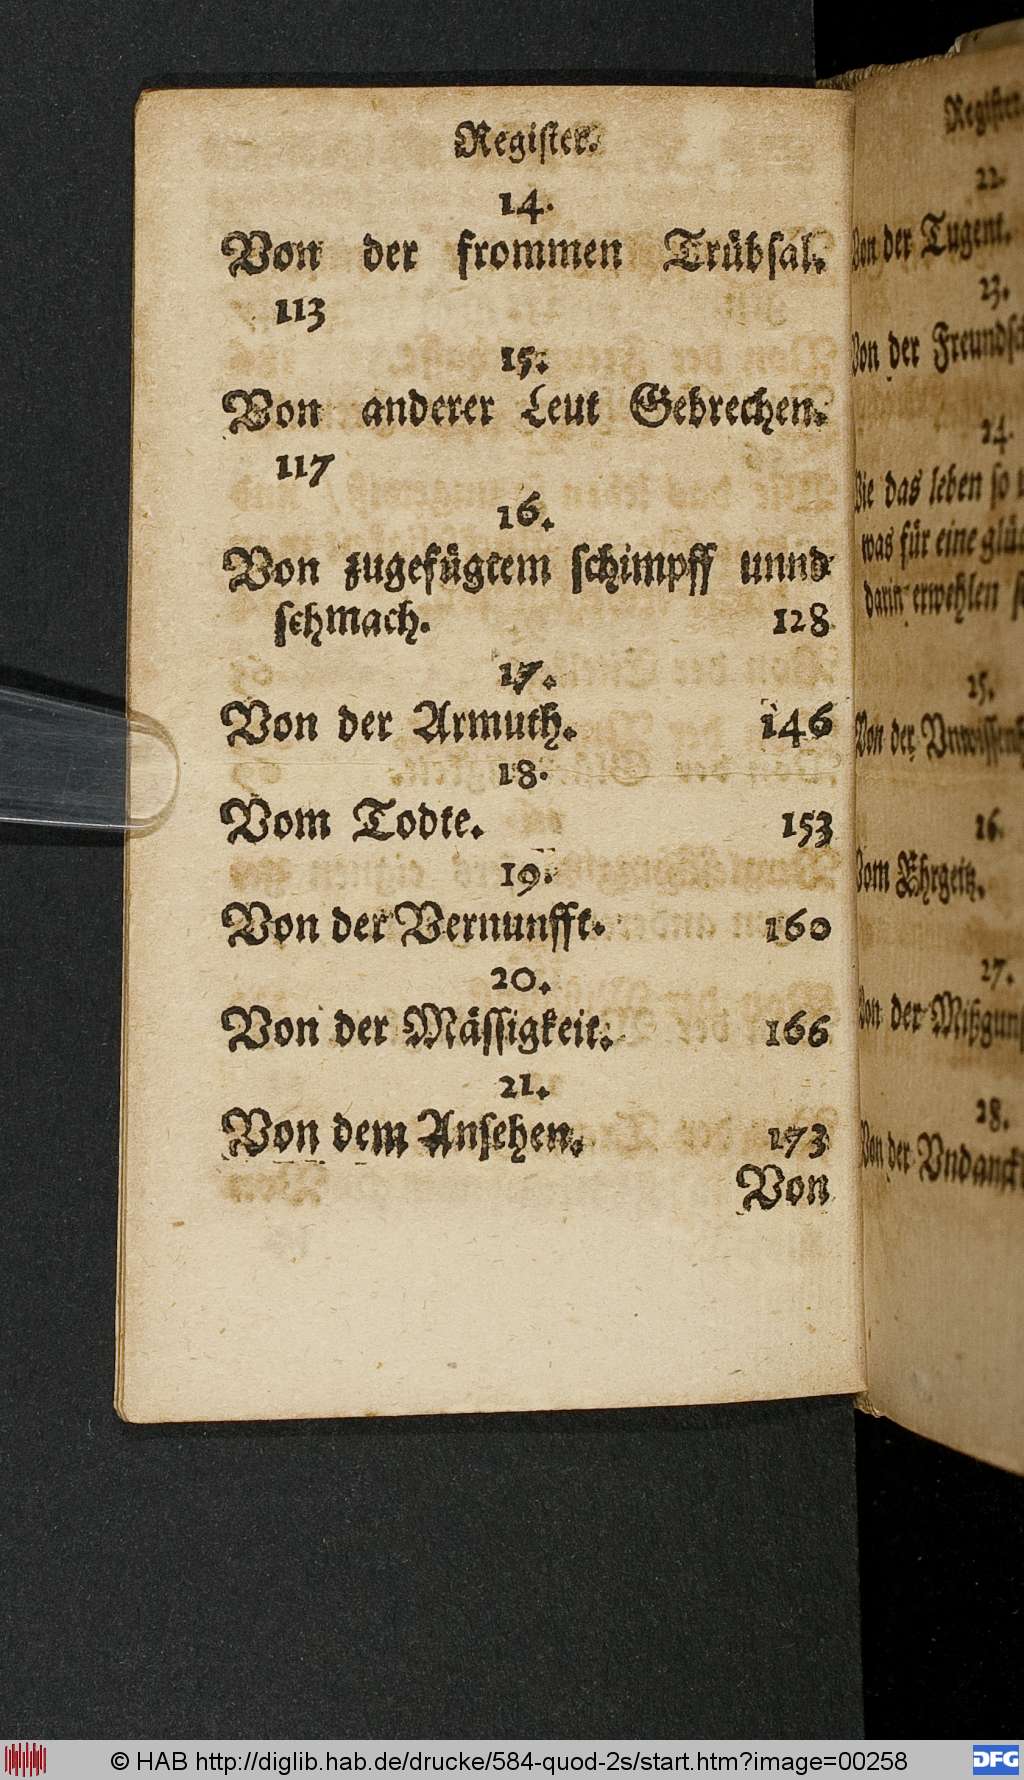 Register.
14.
Von der frommen Trübsal.
113
15.
Von anderer Leut Gebrechen.
117
16.
Von zugefügtem schimpff unnd
schmach. 128
17.
Von der Armuth. 146
18.
Vom Todte. 153
19.
Von der Vernunfft. 160
20.
Von der Mässigkeit. 166
21.
Von dem Ansehen. 173
Von
Register
22.
Von der Tugent.
23.
Von der
24.
das leben so
was für eine
darin erwehlen
25.
Von der
26.
Vom Ehrgeitz.
27.
Von der
28.
Von der
© HAB http://diglib.hab.de/drucke/584-quod-2s/start.htm?image=00258
DFG